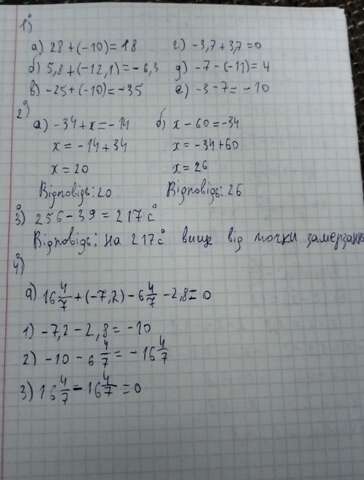 1)
а) 28+(-10)=18 г) -3,7+3,7=0
б) 5,8+(-12,1)=-6,3 д) -7-(-11)=4
в) -25+(-10)=-35 е) -3-7=-10
2)
а) -34+x=-14 б) x-60=-34
x=-14+34 x=-34+60
x=20 x=26
Відповідь: 20 Відповідь: 26
3) 256-39=217 c°
Відповідь: на 217c° вище від точки замерзання
4)
а) 16 4/7+(-7,2)-6 4/7-2,8=0
1) -7,2-2,8=-10
2) -10-6 4/7=-16 4/7
3) 16 4/7-16 4/7=0